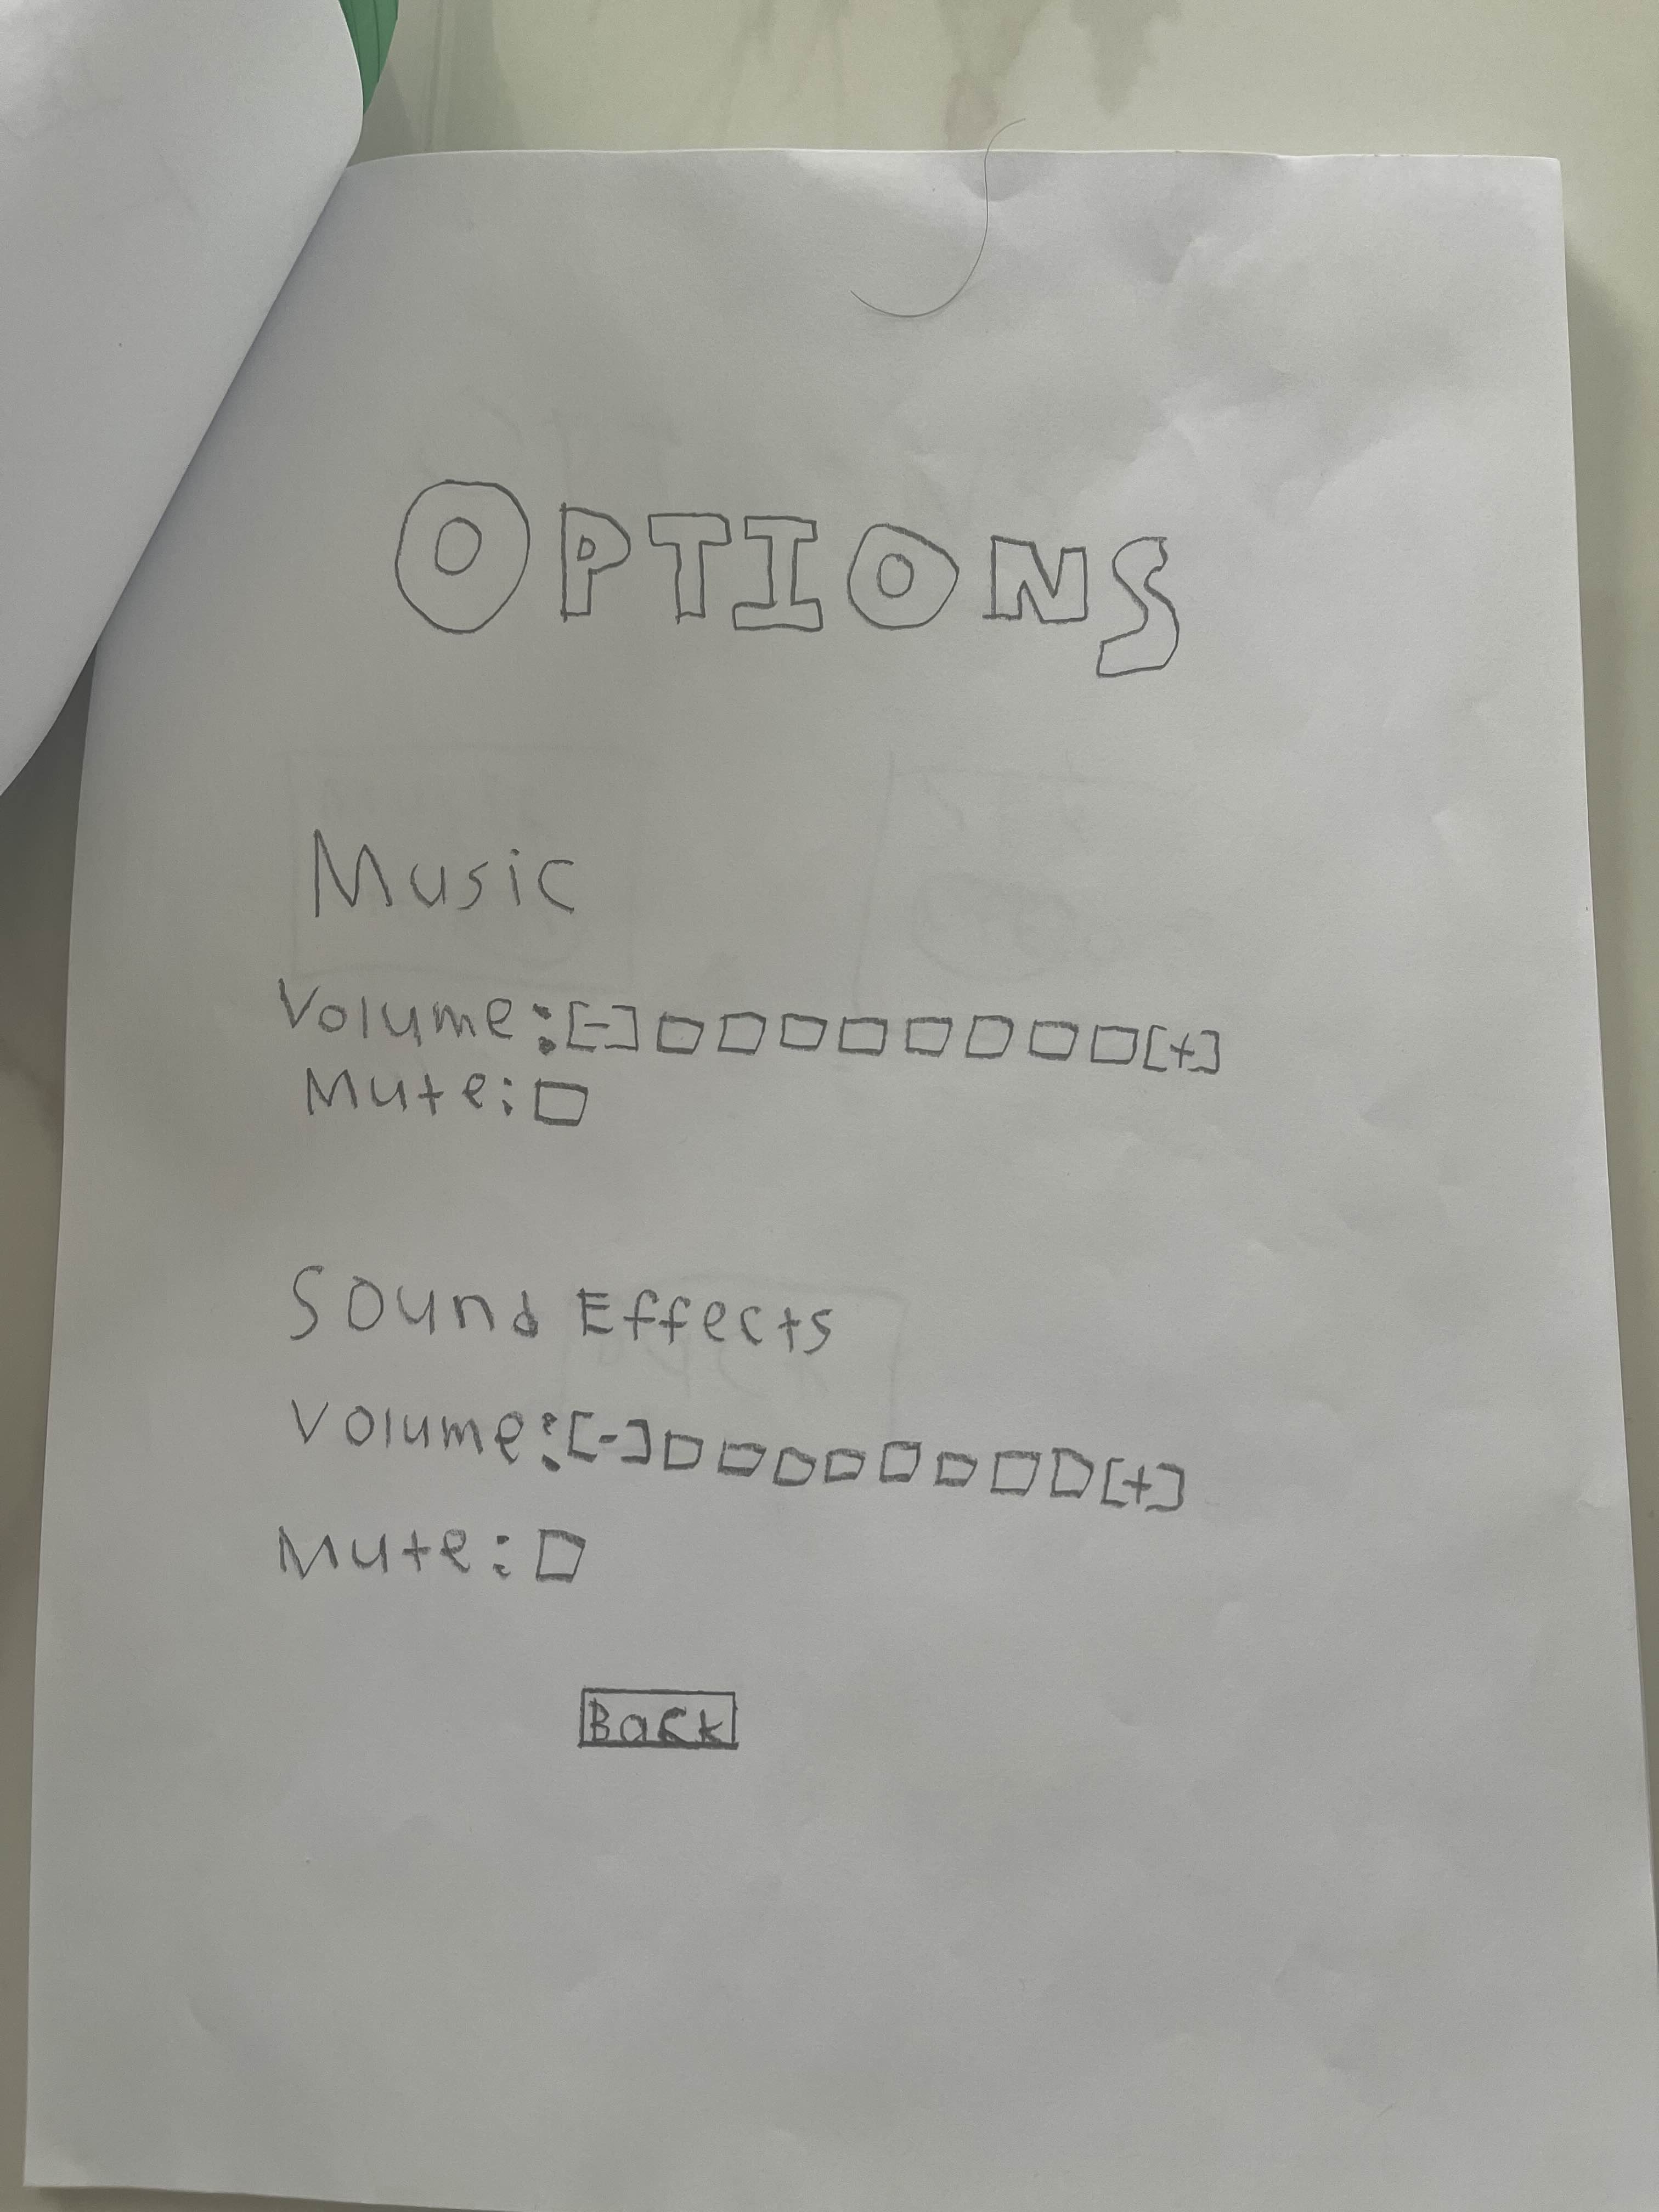 OPTIONS
Music
Volume:[-]□□□□□□□□[+]
Mute:□
Sound Effects
Volume:[-]□□□□□□□□[+]
Mute:□
Back